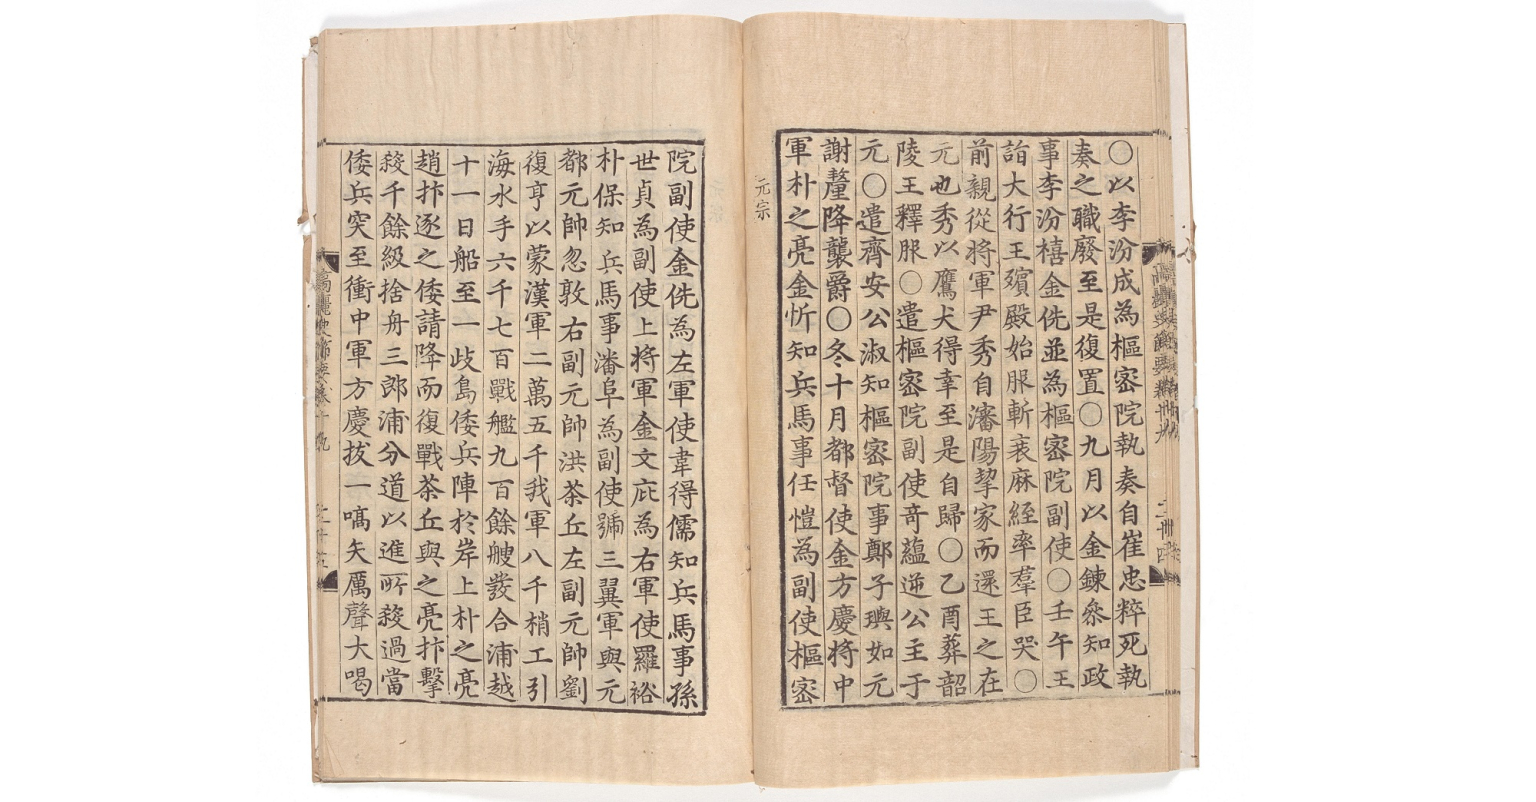 ○以李汾成為樞密院執奏自崔忠粹死執
奏之職廢至是復置○九月以金鍊叅知政
事李汾禧金侁並為樞密院副使○壬午王
詣大行王殯殿始服斬衰麻絰率羣臣哭○
前親從將軍尹秀自瀋陽挈家而還王之在
元也秀以鷹犬得幸至是自歸○乙酉葬韶
陵王釋服○遣樞密院副使竒藴逆公主于
元○遣齊安公淑知樞密院事鄭子璵如元
謝釐降襲爵○冬十月都督使金方慶將中
軍朴之亮金忻知兵馬事任愷為副使樞密
元宗
院副使金侁為左軍使韋得儒知兵馬事孫
世貞為副使上將軍金文庇為右軍使羅裕
朴保知兵馬事潘阜為副使號三翼軍與元
都元帥忽敦右副元帥洪茶丘左副元帥劉
復亨以蒙漢軍二萬五千我軍八千梢工引
海水手六千七百戰艦九百餘艘發合浦越
十一日船至一歧島倭兵陣於岸上朴之亮
趙抃逐之倭請降而復戰茶丘與之亮抃擊
殺千餘級捨舟三郎浦分道以進所殺過當
倭兵突至衝中軍方慶拔一嗃矢厲聲大喝
高麗史節要卷十九